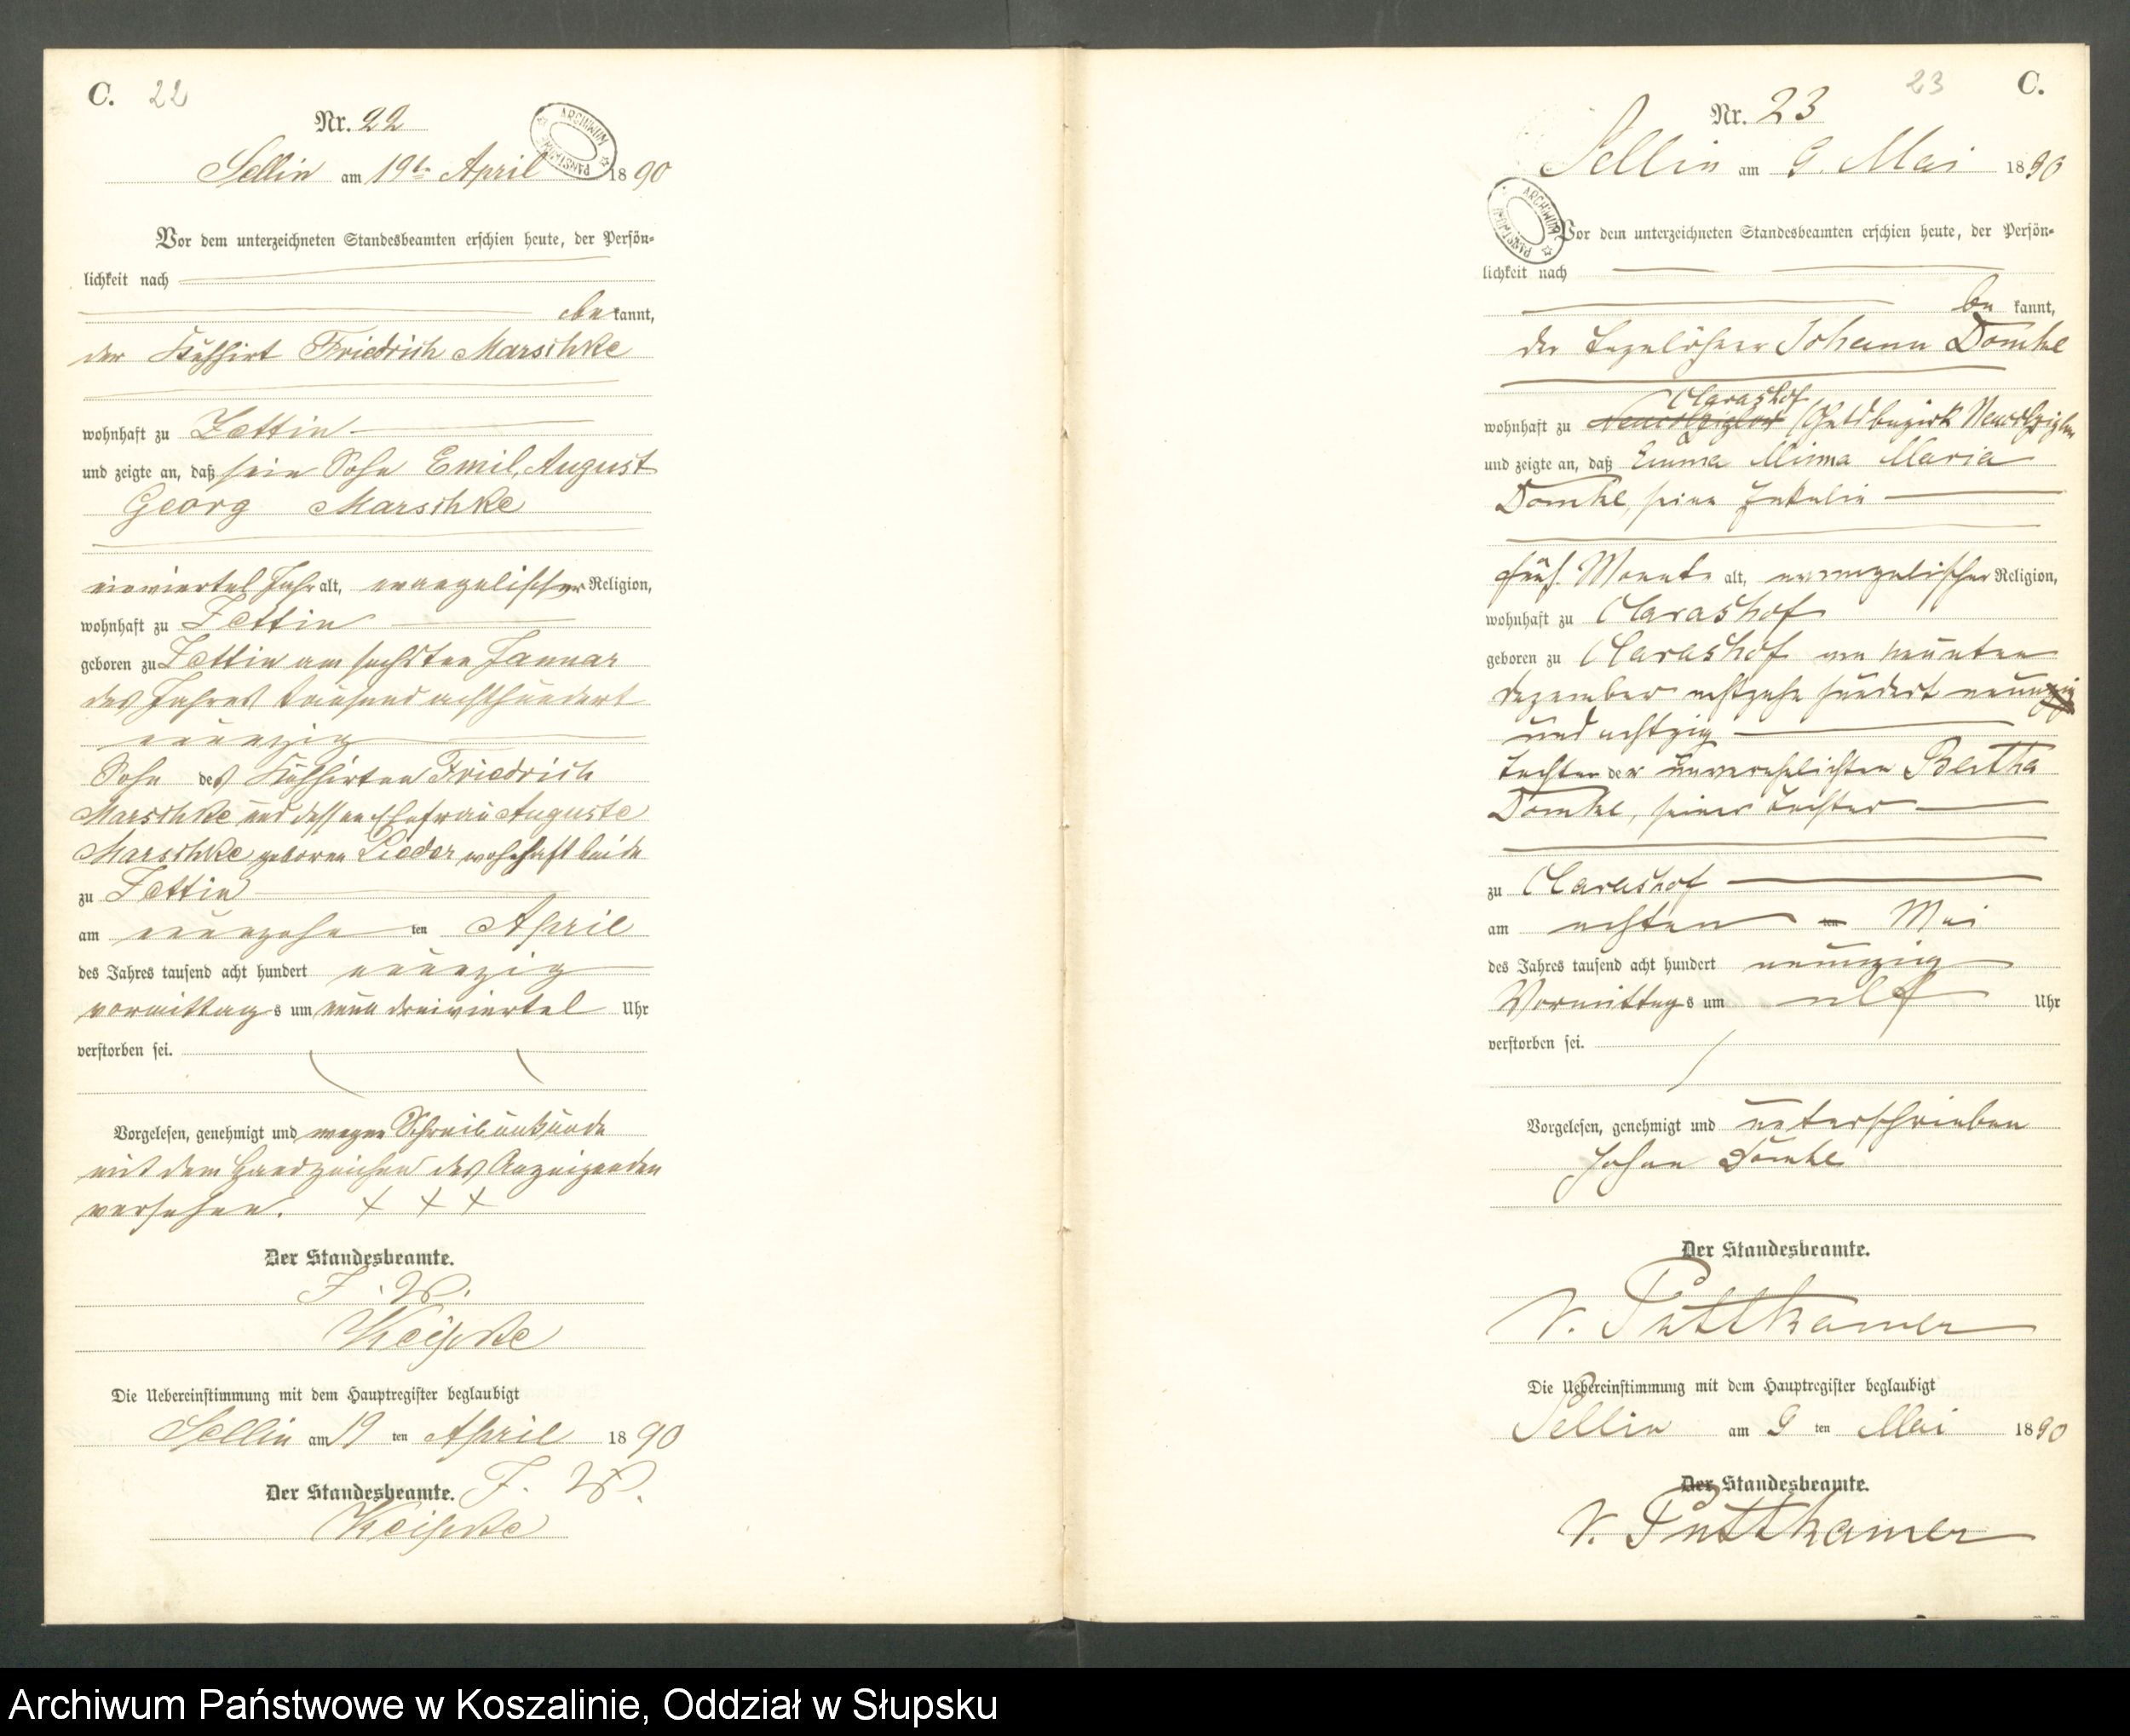 C. 22
Nr. 22
ARCHIWUM PAŃSTWOWE
Sellin am 19ten April 1890
Vor dem unterzeichneten Standesbeamten erschien heute, der Persön-
lichkeit nach
be kannt,
der Kuhhirt Friedrich Marschke
wohnhaft zu Zettin
und zeigte an, daß sein Sohn Emil, August
Georg Marschke
einviertel Jahr alt, evangelischer Religion,
wohnhaft zu Zettin
geboren zu Zettin am sechsten Januar
des Jahres tausend achthundert
neunzig
Sohn des Kuhhirten Friedrich
Marschke und dessen Ehefrau Auguste
Marschke geboren Lieder wohnhaft beide
zu Zettin
am neunzehn ten April
des Jahres tausend acht hundert neunzig
vormittag s um neun dreiviertel Uhr
verstorben sei.
Vorgelesen, genehmigt und wegen Schreibunkunde
mit dem Handzeichen des Anzeigenden
versehen. + + +
Der Standesbeamte.
J. V.
Die Uebereinstimmung mit dem Hauptregister beglaubigt
Sellin am 19 ten April 1890
Der Standesbeamte. J. V.
23 C.
Nr. 23
Sellin am 9. Mai 1890
ARCHIWUM PAŃSTWOWE
Vor dem unterzeichneten Standesbeamten erschien heute, der Persön-
lichkeit nach
be kannt,
der Tagelöhner Johann Domke
Clarashof
wohnhaft zu (Gutsbezirk
und zeigte an, daß Emma Minna Maria
Domke, seine Enkelin
fünf Monate alt, evangelischer Religion,
wohnhaft zu Clarashof
geboren zu Clarashof am neunten
Dezember achtzehn hundert neun
und achtzig
Tochter der unverehelichten Bertha
Domke, seiner Tochter
zu Clarashof
am achten ten Mai
des Jahres tausend acht hundert neunzig
Vormittag s um elf Uhr
verstorben sei.
Vorgelesen, genehmigt und unterschrieben
Johan Domke
Der Standesbeamte.
v. Puttkamer
Die Uebereinstimmung mit dem Hauptregister beglaubigt
Sellin am 9 ten Mai 1890
Der Standesbeamte.
v. Puttkamer
Archiwum Państwowe w Koszalinie, Oddział w Słupsku